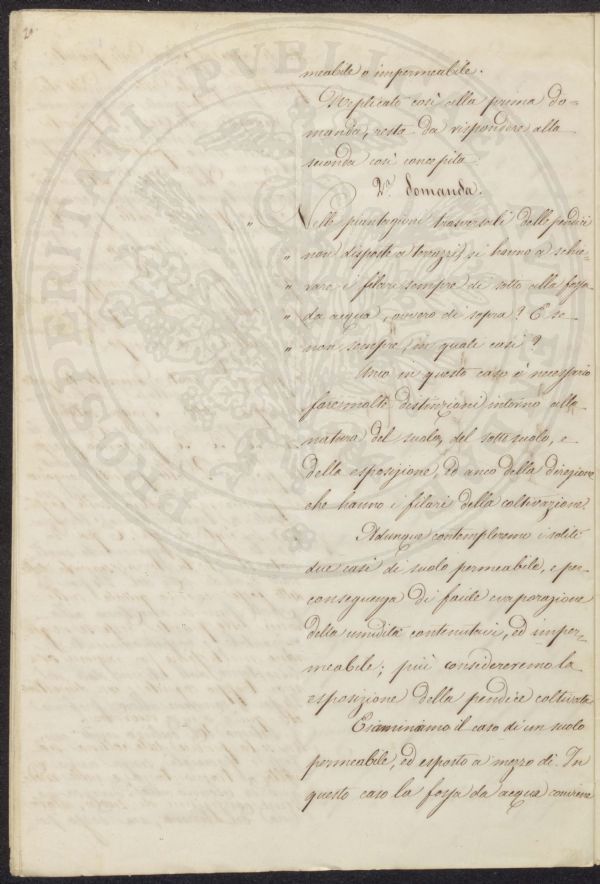 20
meabile o impermeabile.
Replicato così alla prima do=
manda, resta da rispondere alla
seconda così concepita
2.a Domanda.
„ Nelle piantagioni trasversali delle pendici
„ non disposte a terrazzi, si hanno a schie-
„ rare i filari sempre di sotto alla fossa
„ da acqua, ovvero di sopra? E se
„ non sempre, in quali casi?
Anco in questo caso è necessario
fare molte distinzioni intorno alla
natura del suolo, del sotto suolo, e
della esposizione, ed anco della direzione
che hanno i filari della coltivazione.
Adunque contempleremo i soliti
due casi di suolo permeabile, e per
conseguenza di facile evaporazione
della umidità contenutavi, ed imper-
meabile; più considereremo la
esposizione della pendice coltivata.
Esaminiamo il caso di un suolo
permeabile, ed esposto a mezzo dì. In
questo caso la fossa da acqua conviene
PROSPERITATI PVBLICAE